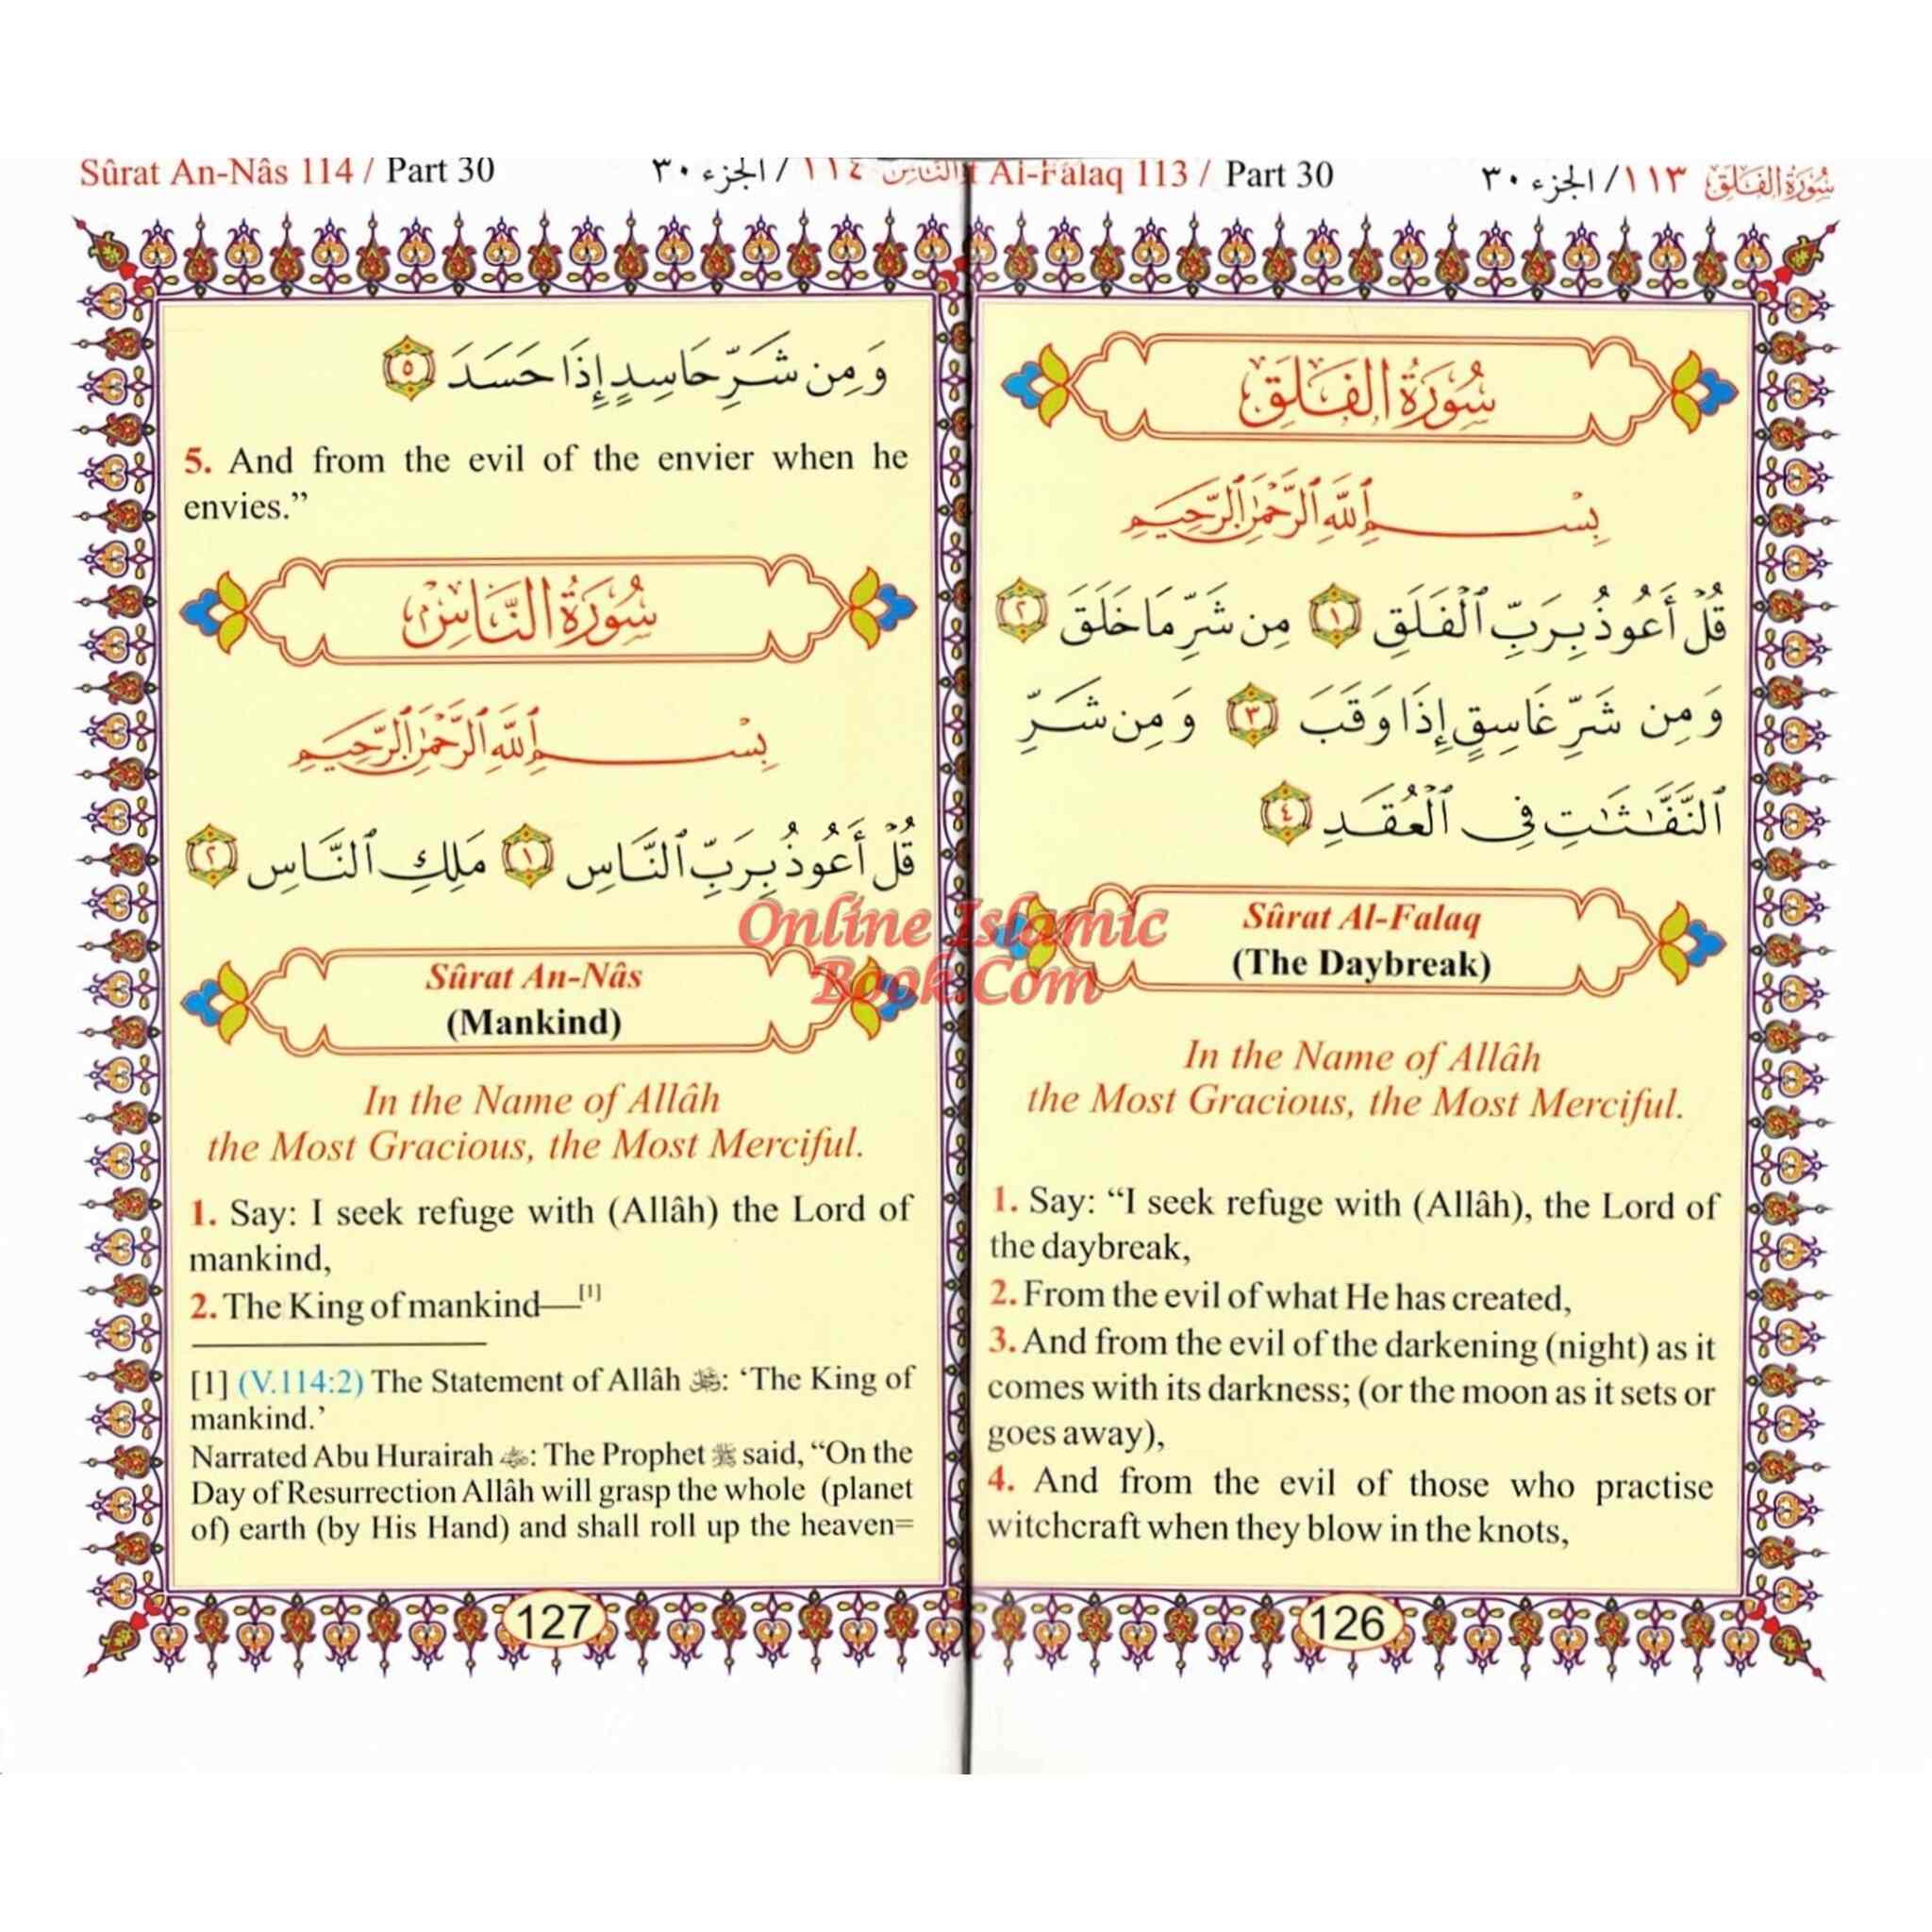 سُورَةُ الفَلَق ١١٣/ الجزء ٣٠
Al-Falaq 113 / Part 30
سُورَةُ الفَلَقِ
بِسْمِ ٱللَّهِ ٱلرَّحْمَٰنِ ٱلرَّحِيمِ
قُلْ أَعُوذُ بِرَبِّ ٱلْفَلَقِ ١ مِن شَرِّ مَا خَلَقَ ٢
وَمِن شَرِّ غَاسِقٍ إِذَا وَقَبَ ٣ وَمِن شَرِّ
ٱلنَّفَّٰثَٰتِ فِى ٱلْعُقَدِ ٤
Sûrat Al-Falaq
(The Daybreak)
In the Name of Allâh
the Most Gracious, the Most Merciful.
1. Say: “I seek refuge with (Allâh), the Lord of
the daybreak,
2. From the evil of what He has created,
3. And from the evil of the darkening (night) as it
comes with its darkness; (or the moon as it sets or
goes away),
4. And from the evil of those who practise
witchcraft when they blow in the knots,
126
Sûrat An-Nâs 114 / Part 30
النَّاسِ ١١٤ / الجزء ٣٠
وَمِن شَرِّ حَاسِدٍ إِذَا حَسَدَ ٥
5. And from the evil of the envier when he
envies.”
سُورَةُ النَّاسِ
بِسْمِ ٱللَّهِ ٱلرَّحْمَٰنِ ٱلرَّحِيمِ
قُلْ أَعُوذُ بِرَبِّ ٱلنَّاسِ ١ مَلِكِ ٱلنَّاسِ ٢
Sûrat An-Nâs
(Mankind)
In the Name of Allâh
the Most Gracious, the Most Merciful.
1. Say: I seek refuge with (Allâh) the Lord of
mankind,
2. The King of mankind—[1]
[1] (V.114:2) The Statement of Allâh : ‘The King of
mankind.’
Narrated Abu Hurairah : The Prophet ﷺ said, “On the
Day of Resurrection Allâh will grasp the whole (planet
of) earth (by His Hand) and shall roll up the heaven=
127
Online Islamic
Book.Com